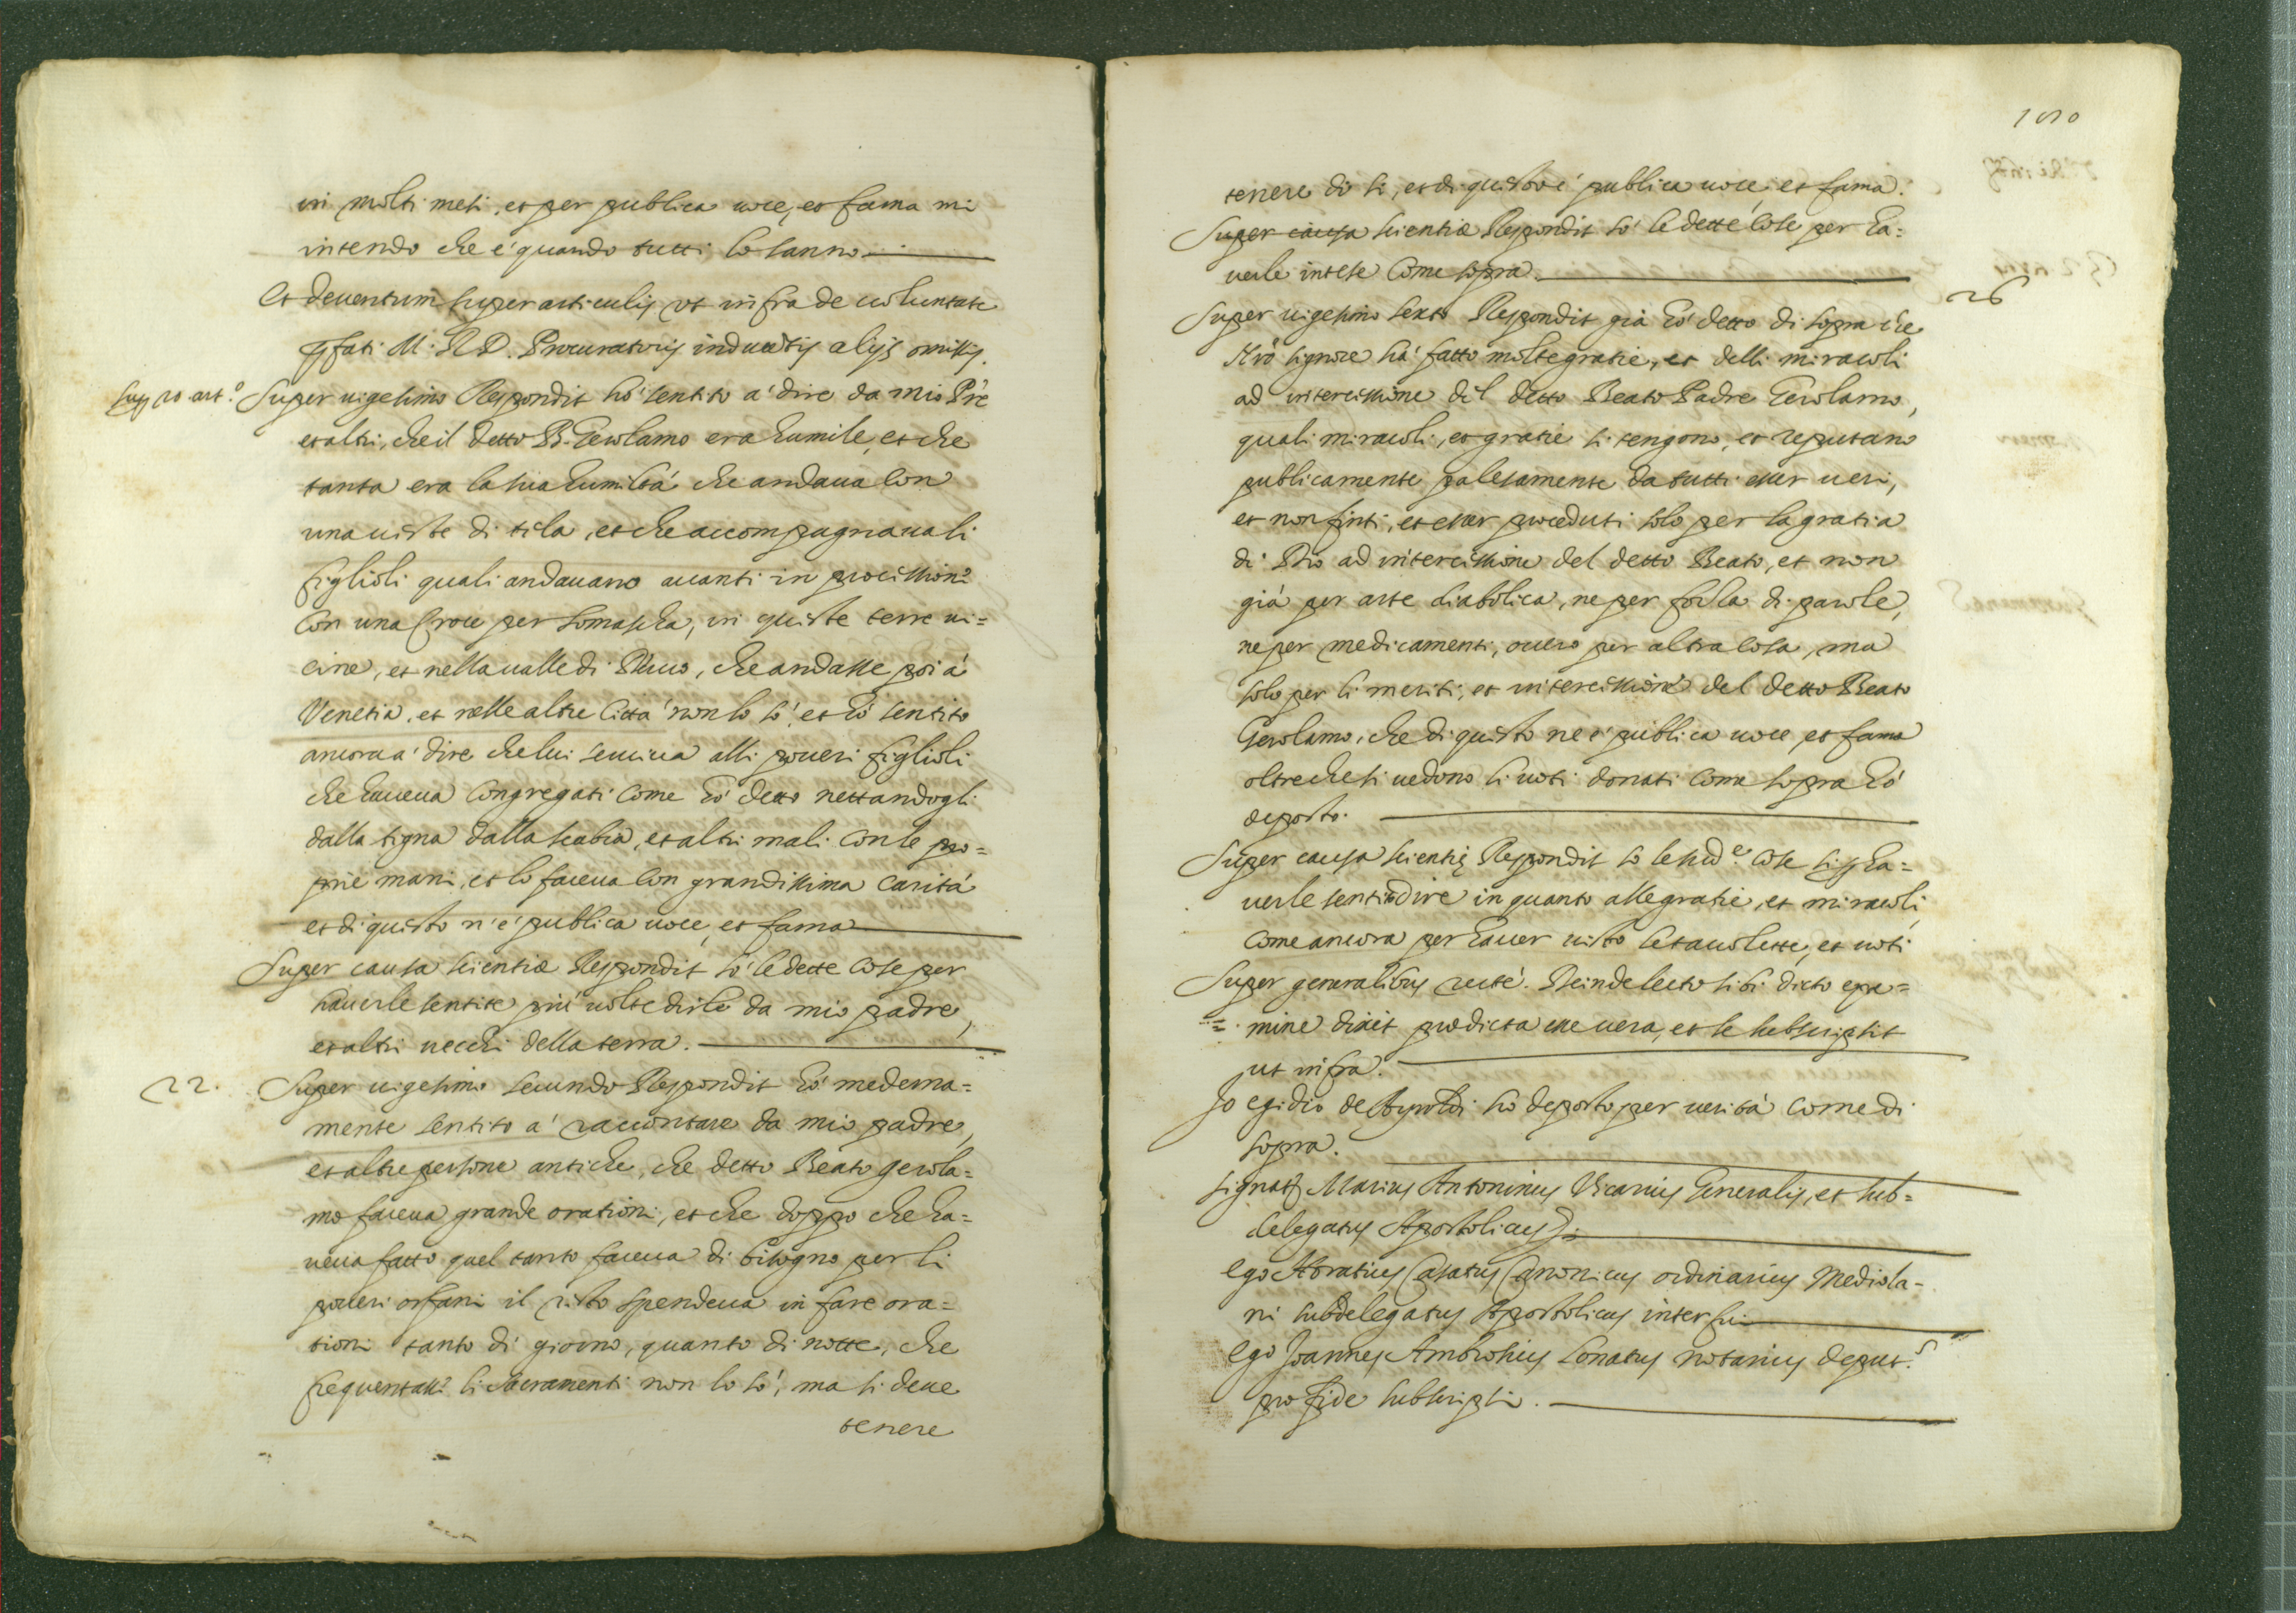 in molti meti, et per publica uoce, et fama mi
intendo che è quando tutti lo sanno
Et deuentum super articulis ut infra de uoluntate
pfati M. R. D. Procuratoris inductis alijs omissis.
Sup 20 art.º
Super uigesimo Respondit hò sentito a' dire da mio Pre
et altri, che il detto B. Gerolamo era humile, et che
tanta era la sua humiltà che andaua con
una ueste di tela, et che accompagnaua li
figlioli quali andauano auanti in processione
con una Croce per Somascha, in queste terre ui=
cine, et nella ualle di, che andasse poi à
Venetia, et nelle altre Città non lo sò, et hò sentito
ancora a' dire che lui seruiua alli poueri figlioli
che haueua Congregati come hò detto nettandogli
dalla tigna dalla scabia, et altri mali con le pro=
prie mani, et lo faceua con grandissima carità
et di questo n'è publica uoce, et fama
Super causa scientiæ Respondit sò le dette cose per
hauerle sentite più uolte dirle da mio padre,
et altri uecchi della terra.
22.
Super uigesimo secundo Respondit hò medema=
mente sentito a' raccontare da mio padre,
et altre persone antiche, che detto Beato Gerola=
mo faceua grande orationi, et che doppo che ha=
ueua fatto quel tanto faceua di bisogno per li
poueri orfani il resto spendeua in fare ora=
tioni tanto di giorno, quanto di notte, che
frequentasse li Sacramenti non lo sò, ma si deue
tenere
tenere di si, et di questo è publica uoce et fama.
Super causa scientiæ Respondit sò le dette cose per ha=
uerle intese come sopra
26
Super uigesimo sexto Respondit già hò detto di sopra che
Nrõ signore hà fatto molte gratie, et delli miracoli
ad intercessione del detto Beato Padre Gerolamo,
quali miracoli, et gratie si tengono, et reputano
publicamente palesamente da tutti esser ueri,
et non finti, et esser proceduti solo per la gratia
di Dio ad intercessione del detto Beato, et non
già per arte diabolica, ne per forza di parole,
ne per medicamenti, ouero per altra cosa, ma
solo per li meriti, et intercessione del detto Beato
Gerolamo, che di questo ne è publica uoce, et fama
oltre che si uedono li uoti donati come sopra hò
deposto.
Super causa scientię Respondit sò le sudᵉ cose si p ha=
uerle sentito dire in quanto alle gratie, et miracoli,
come ancora per hauer uisto le tauolette, et uoti
Super generalibus recte. Deinde lecto sibi dicto exa=
mine dixit prædicta esse uera, et se subscripsit
ut infra.
Io egidio de hò deposto per uerità come di
sopra.
signat Marius Antoninus Vicarius Generalis, et sub=
delegatus Apostolicus
Ego Horatius Casatus Canonicus ordinarius Mediola=
ni subdelegatus Apostolicus interfui
Ego Joannes Ambrosius Lonatus notarius deput.ˢ
pro fide subscripsi.